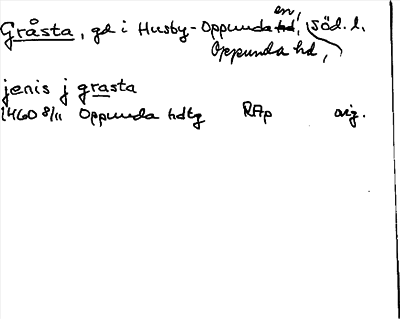 Gråsta, gd i Husby-Oppunda sn, Söd. l.
Oppunda hd,
jenis j grasta
1460 8/11 Oppunda hdtg RAp orig.